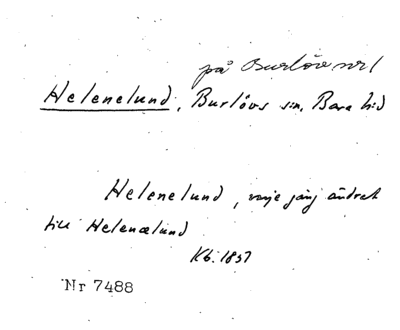 på Burlöv nr 1
Helenelund, Burlövs sn, Bara hd
Helenelund, varje gång ändrat
till Helenalund
Kb. 1857
Nr 7488